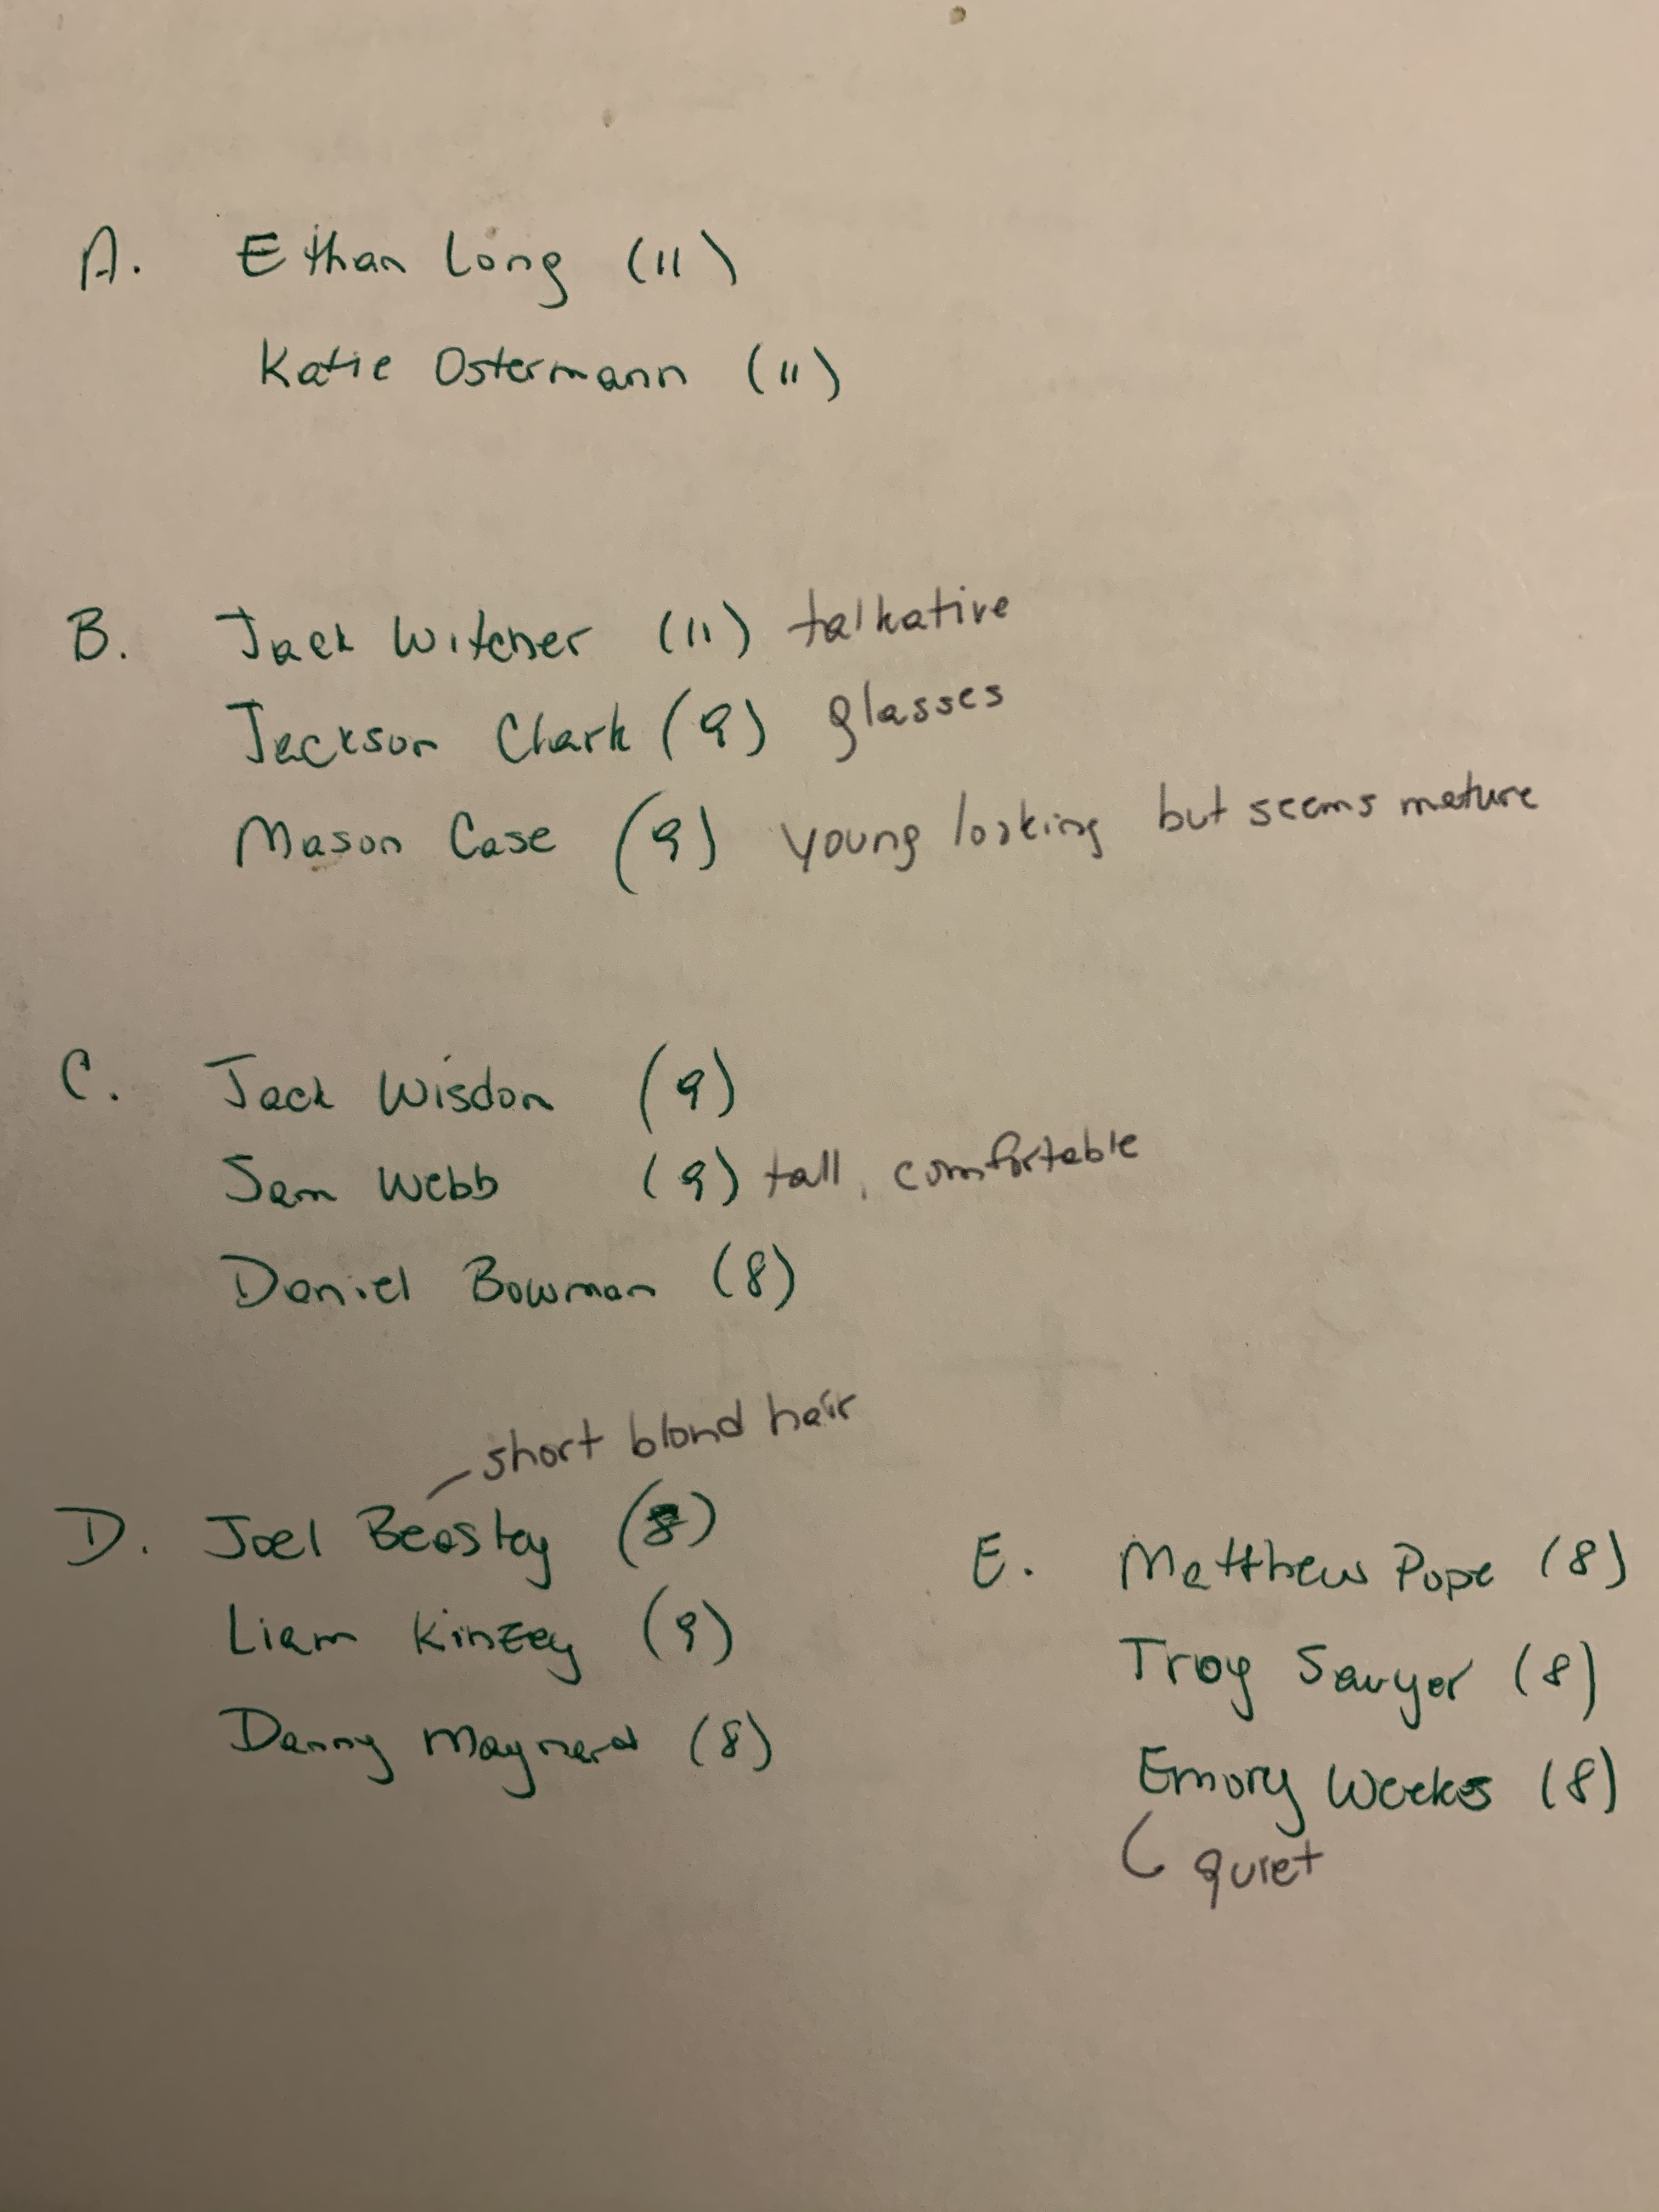 A. Ethan Long (11)
Katie Ostermann (11)
B. Jack Witcher (11) talkative
Jackson Clark (9) glasses
Mason Case (9) young looking but seems mature
C. Jack Wisdom (9)
Sam Webb (9) tall, comfortable
Daniel Bowman (8)
short blond hair
D. Joel Beasley (8)
Liam Kinzey (9)
Danny Maynard (8)
E. Matthew Pope (8)
Troy Sawyer (8)
Emory Weeks (8)
quiet